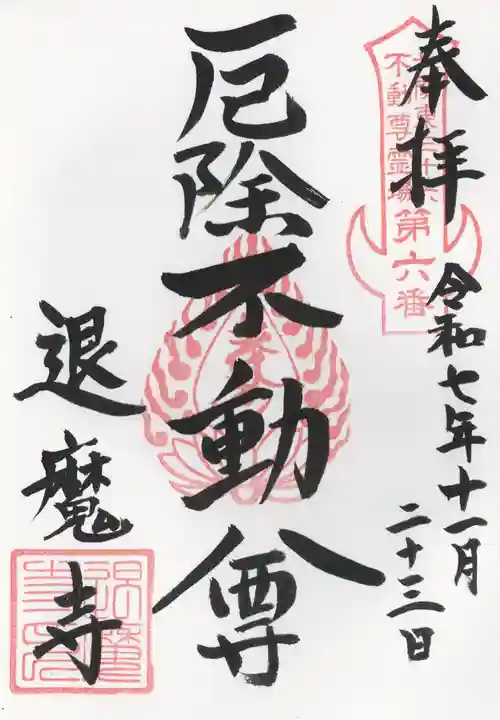 奉拝
不動尊霊場
第六番
令和七年十一月
二十三日
厄除不動尊
退魔寺